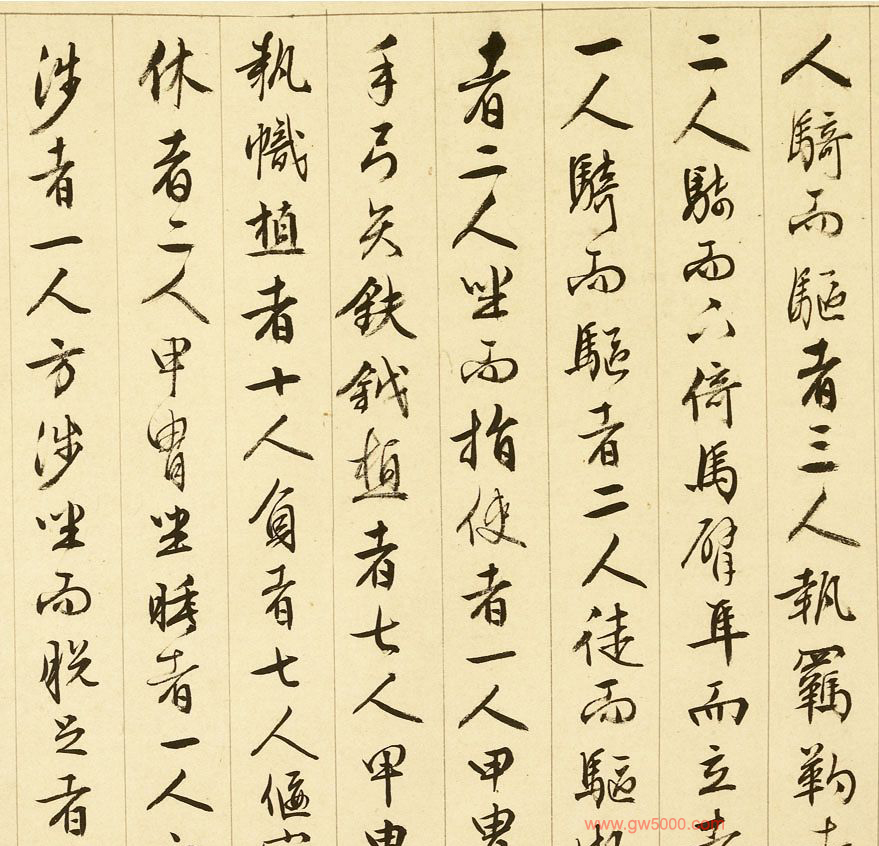 人騎而驅者三人執羈靮
二人騎而下倚馬臂隼而立者
一人騎而驅者二人徒而驅
者二人坐而指使者一人甲冑
手弓矢鈇鉞植者七人甲冑
執幟植者十人負者七人偃
休者二人甲冑坐睡者一人
涉者一人方涉坐而脫足者
www.gw5000.com